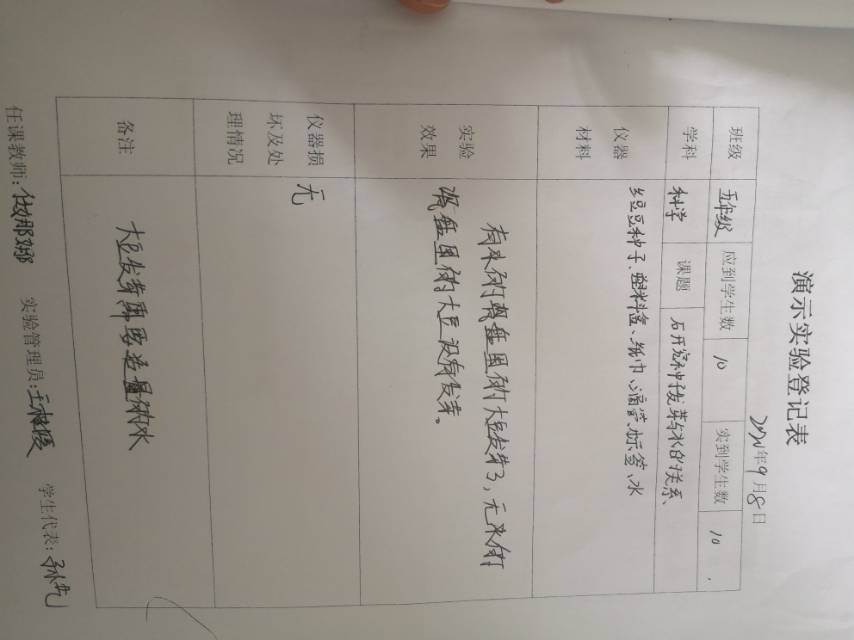 演示实验登记表
年9月8日
班级 五年级 应到学生数 10 实到学生数 10
学科 科学 课题 研究种子发芽与水的关系
仪器
材料
豆种子、塑料盒、纸巾、滴管、标签、水
实验
效果
有水的器盘里的大豆发芽了,无水的
器盘里的大豆没有发芽。
仪器损
坏及处
理情况
无
备注
大豆发芽需要适量的水
任课教师: 实验管理员: 学生代表: